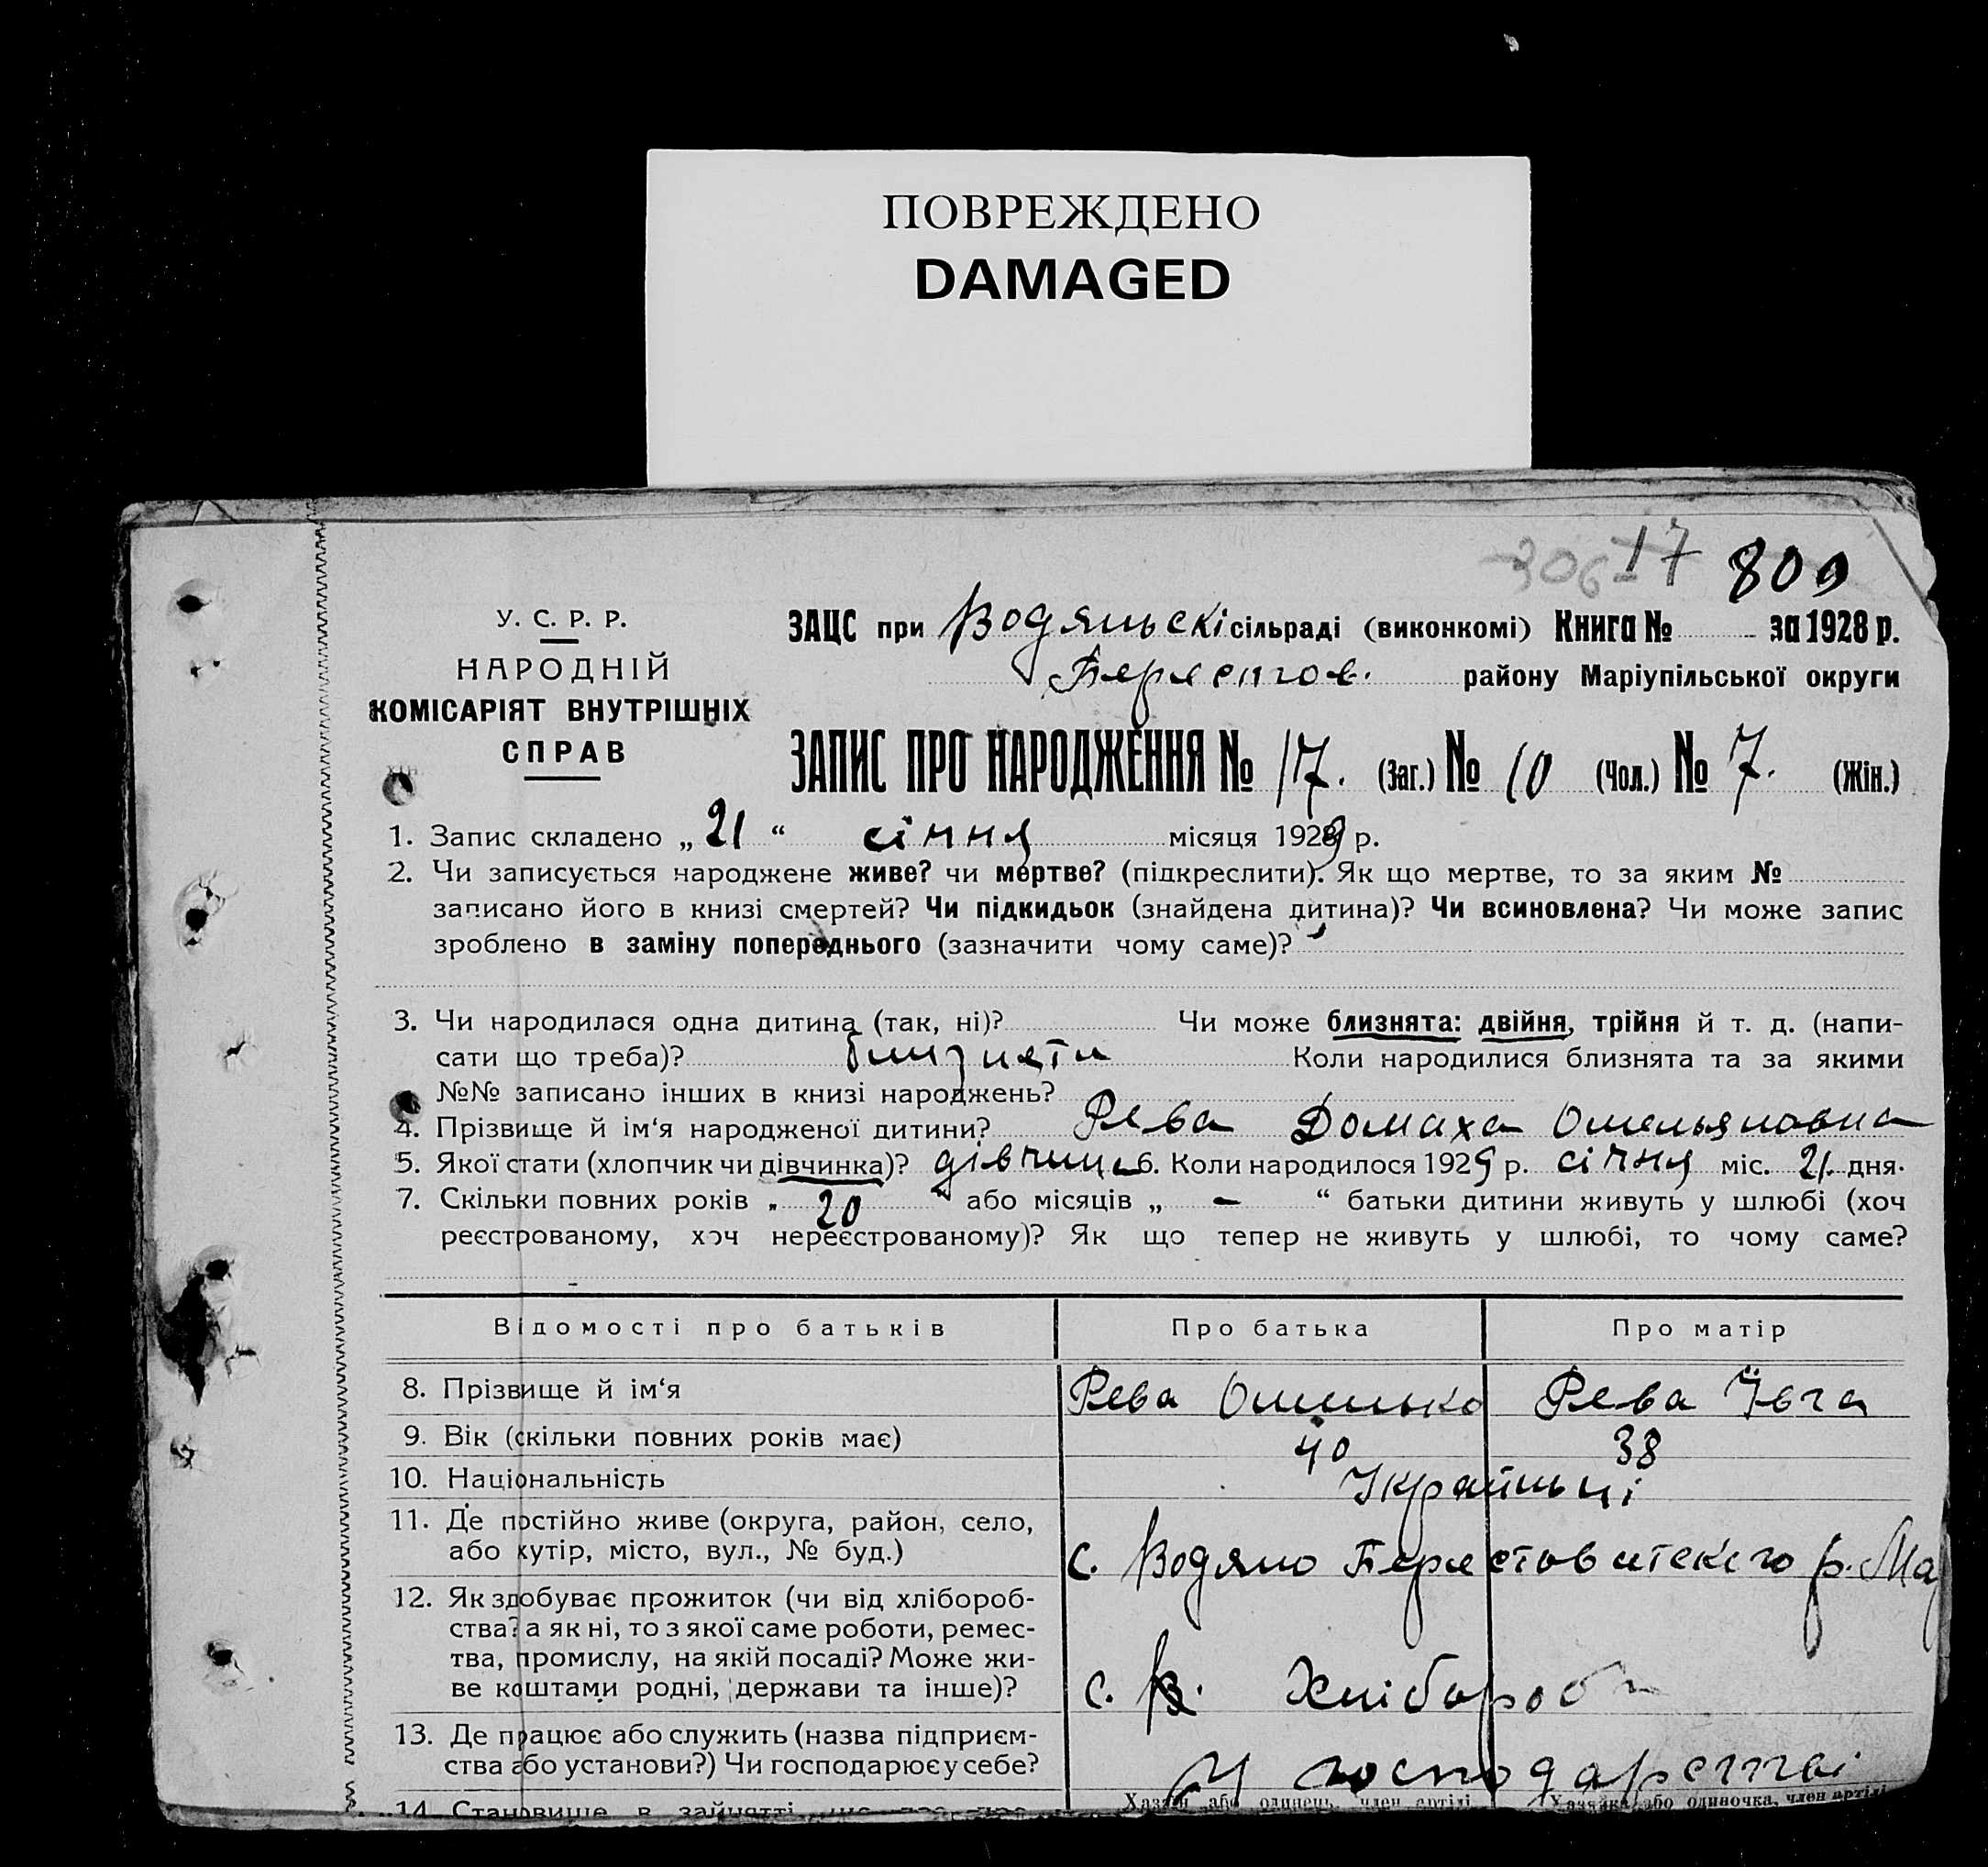 ПОВРЕЖДЕНО
DAMAGED
306 17 809
У. С. Р. Р.
НАРОДНІЙ
КОМІСАРІЯТ ВНУТРІШНІХ
СПРАВ
ЗАЦС при Водяньскі сільраді (виконкомі) Книга № за 1928 р.
Берестов. району Маріупільської округи
ЗАПИС ПРО НАРОДЖЕННЯ № 17. (Заг.) № 10 (Чол.) № 7. (Жін.)
1. Запис складено „ 21 “ січня місяця 1929 р.
2. Чи записується народжене живе? чи мертве? (підкреслити). Як що мертве, то за яким №
записано його в книзі смертей? Чи підкидьок (знайдена дитина)? Чи всиновлена? Чи може запис
зроблено в заміну попереднього (зазначити чому саме)?
3. Чи народилася одна дитина (так, ні)? Чи може близнята: двійня, трійня й т. д. (напи-
сати що треба)? близнята Коли народилися близнята та за якими
№№ записано інших в книзі народжень?
4. Прізвище й ім‘я народженої дитини? Рева Домаха Омельяновна
5. Якої стати (хлопчик чи дівчинка)? дівчина 6. Коли народилося 1929 р. січня міс. 21. дня.
7. Скільки повних років „ 20 “ або місяців „ - “ батьки дитини живуть у шлюбі (хоч
реєстрованому, хоч нереєстрованому)? Як що тепер не живуть у шлюбі, то чому саме?
Відомості про батьків Про батька Про матір
8. Прізвище й ім‘я Рева Омелько Рева Ївга
9. Вік (скільки повних років має) 40 38
10. Національність Україньці
11. Де постійно живе (округа, район, село,
або хутір, місто, вул., № буд.) с. Водяно р. Ма
12. Як здобуває прожиток (чи від хлібороб-
ства? а як ні, то з якої саме роботи, ремес-
тва, промислу, на якій посаді? Може жи-
ве коштами родні, держави та інше)? с. в. Хлібороби
13. Де працює або служить (назва підприєм-
ства або установи?) Чи господарює у себе? У господарстві
14. Становище в занятті
Хазяїн або одинець, член артілі Хазяйка або одиночка, член артілі